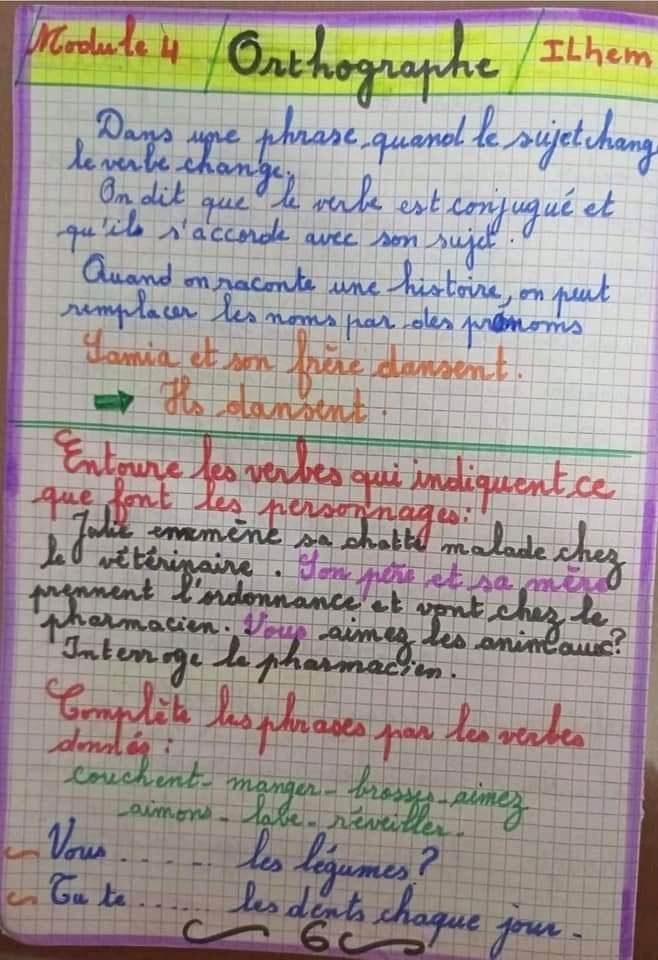 Module 4 / Orthographe / ILhem
Dans une phrase, quand le sujet chang
le verbe change.
On dit que le verbe est conjugué et
qu'ils s'accorde avec son sujet.
Quand on raconte une histoire, on peut
remplacer les noms par des pronoms
Samia et son frère dansent.
➡ Ils dansent.
Entoure les verbes qui indiquent ce
que font les personnages:
Julie emmène sa chatte malade chez
le vétérinaire. Son père et sa mère
prennent l'ordonnance et vont chez le
pharmacien. Vous aimez les animaux?
Interroge le pharmacien.
Complète les phrases par les verbes
donnés:
couchent - manger - brosses - aimez
aimons - labe - réveiller.
~ Vous ...... les légumes?
~ Tu te ...... les dents chaque jour.
6